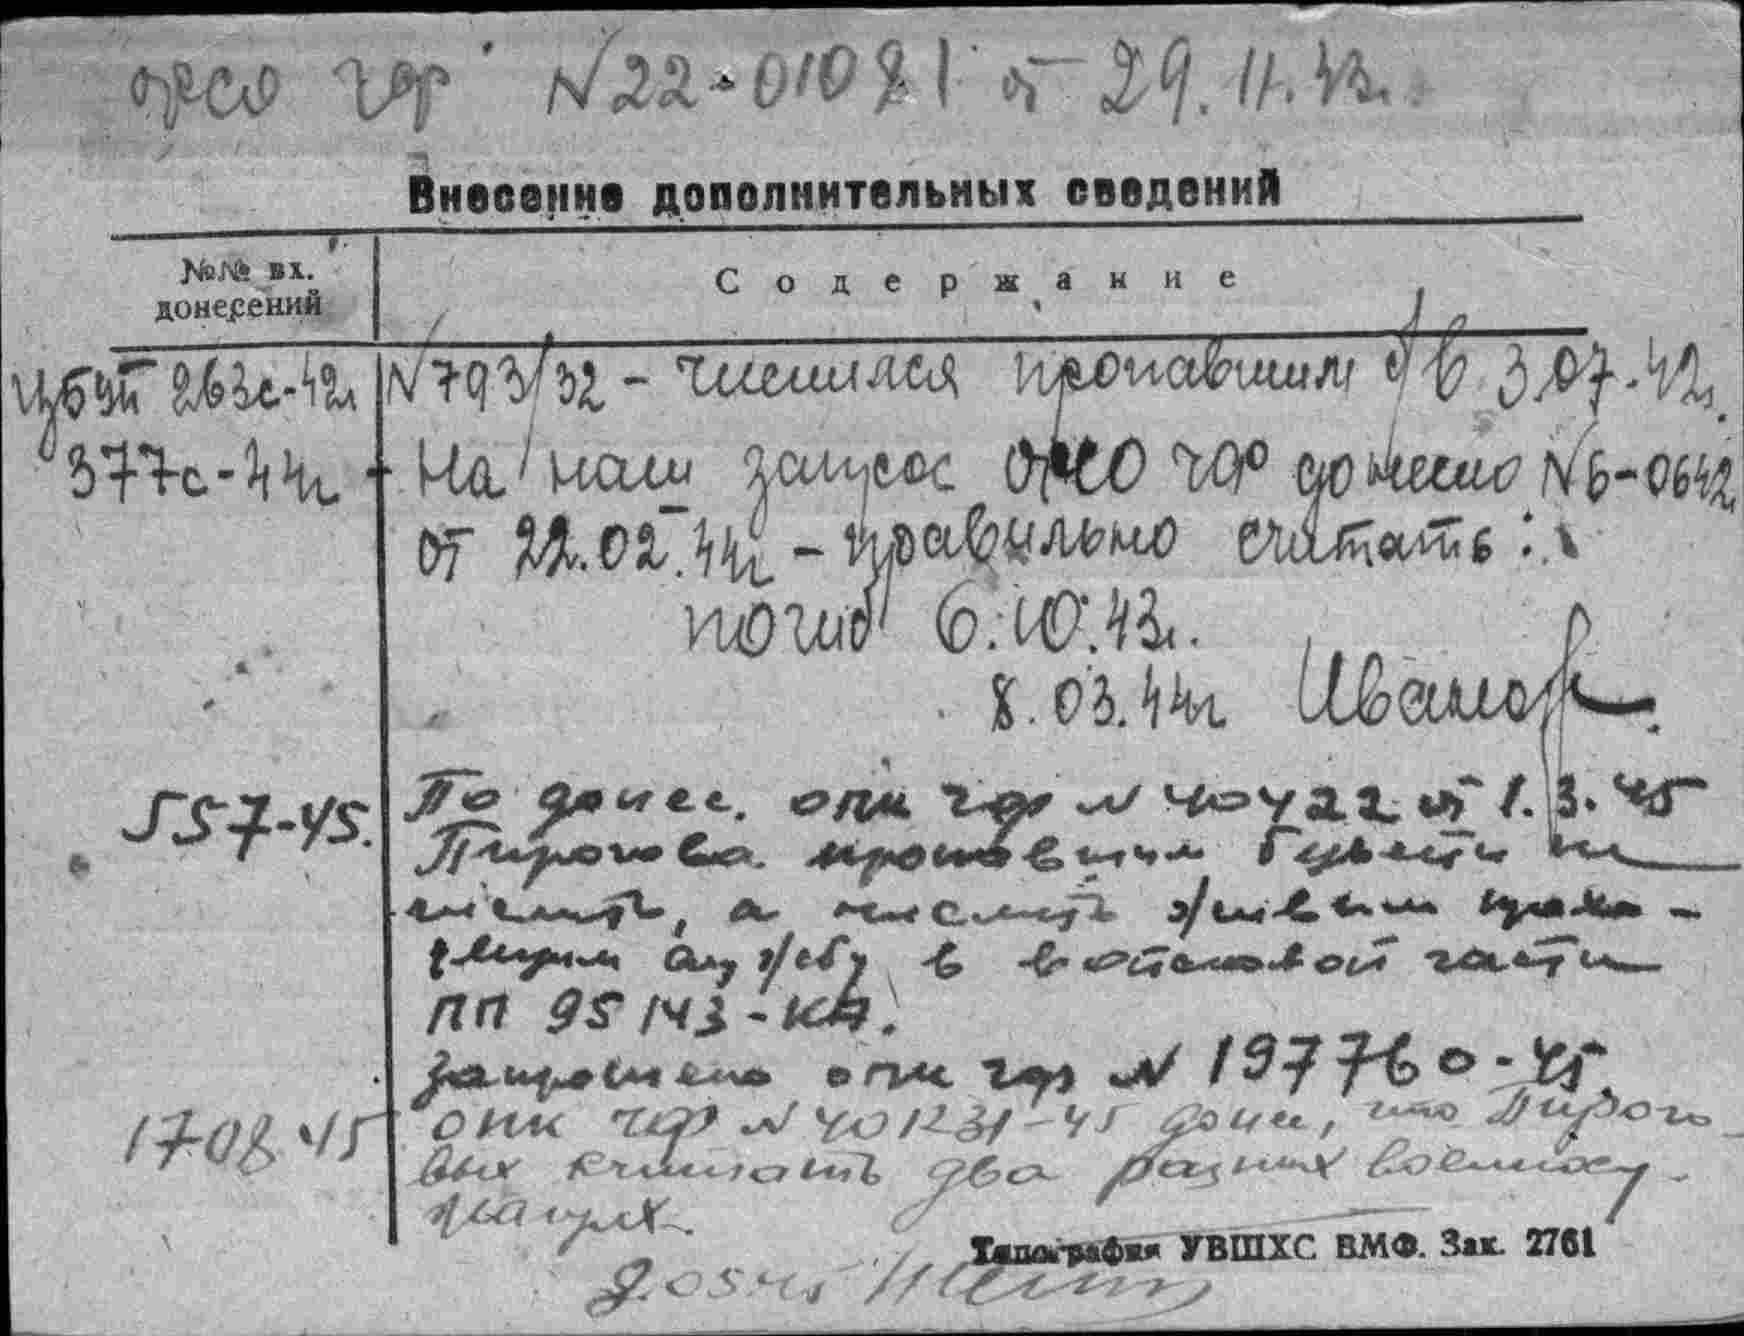 орсо чф N 22-01021 от 29.11.43г.
Внесение дополнительных сведений
№№ вх. донесений
Содержание
263с-42г N 793/32 - числился пропавшим б/в 3.07.42г.
377с-44г На наш запрос орсо чф донесло N 6-0642
от 22.02.44г - правильно считать:
погиб 6.10.43г.
8.03.44г Иванов
557-45. По донес. опк чф N 40422 от 1.3.45
Пирогова пропавшим без вести не
числить, а числить живым прохо-
дящим службу в войсковой части
ПП 95143-
запрошено опк чф N 197760-45.
1708 45 опк чф N 401231-45 донес, что Пирого-
вых считать два разных военнослу-
жащих.
Типография УВШХС ВМФ. Зак. 2761